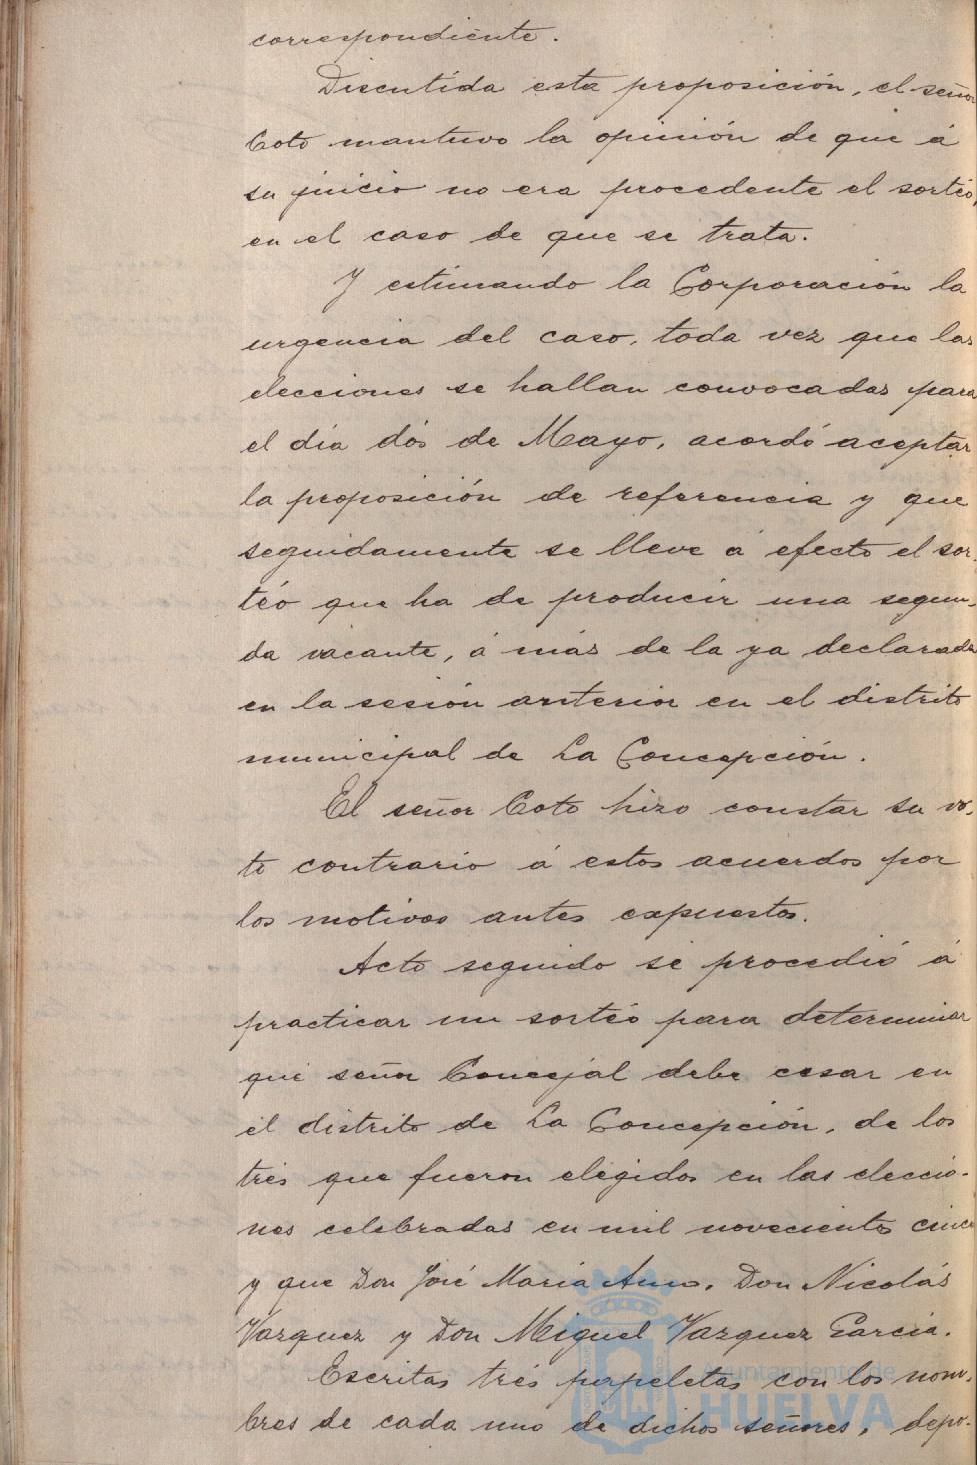 correspondiente.
Discutida esta proposición, el señor
Coto mantuvo la opinión de que á
su juicio no era procedente el sorteo,
en el caso de que se trata.
Y estimando la Corporación la
urgencia del caso, toda vez que las
elecciones se hallan convocadas para
el día dos de Mayo, acordó aceptar
la proposición de referencia y que
seguidamente se lleve á efecto el sor-
teo que ha de producir una segun-
da vacante, á más de la ya declarada
en la sesión anterior en el distrito
municipal de La Concepción.
El señor Coto hizo constar su vo-
to contrario á estos acuerdos por
los motivos antes expuestos.
Acto seguido se procedió á
practicar un sorteo para determinar
que señor Concejal debe cesar en
el distrito de La Concepción, de los
tres que fueron elegidos en las eleccio-
nes celebradas en mil novecientos cinco
y que Don José María Amo, Don Nicolás
Vazquez y Don Miguel Vazquez Garcia.
Escritas tres papeletas con los nom-
bres de cada uno de dichos señores, depo-
Ayuntamiento de
HUELVA